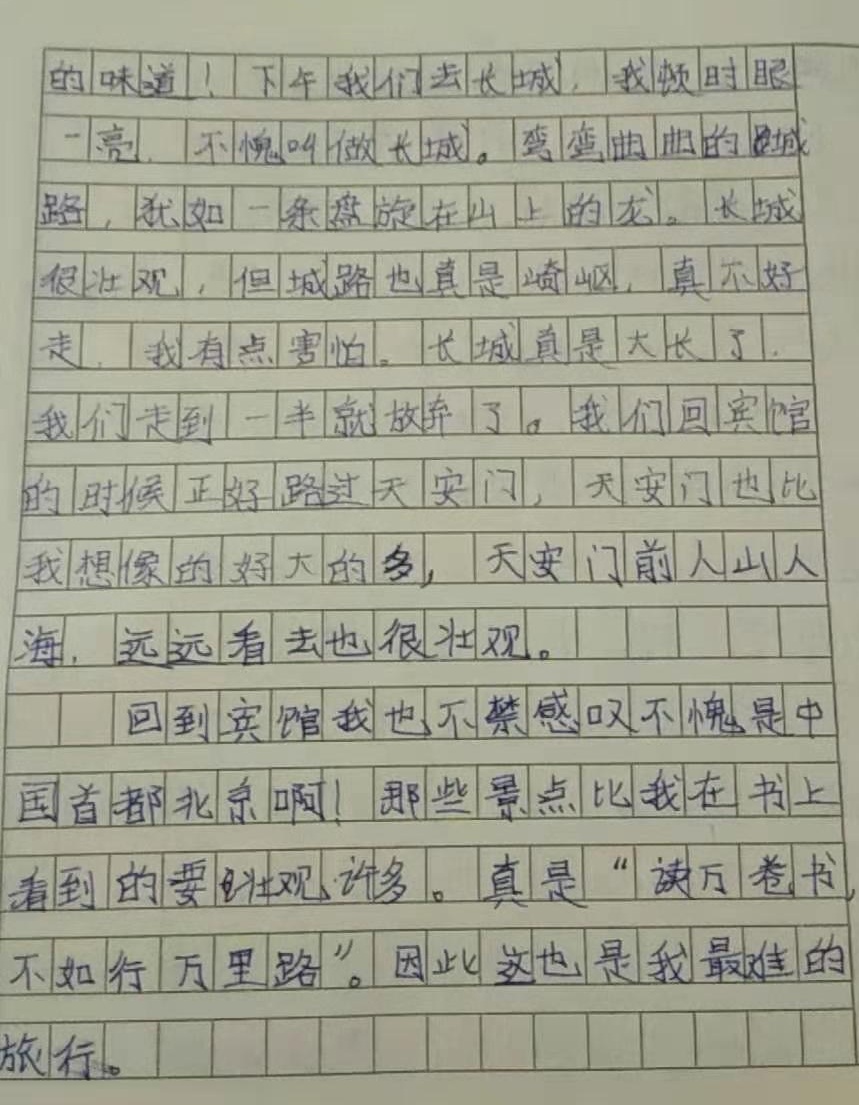 的味道！下午我们去长城，我顿时眼
一亮，不愧叫做长城。弯弯曲曲的城
路，犹如一条盘旋在山上的龙。长城
很壮观，但城路也真是崎岖，真不好
走，我有点害怕。长城真是大长了，
我们走到一半就放弃了。我们回宾馆
的时候正好路过天安门，天安门也比
我想像的好大的多，天安门前人山人
海，远远看去也很壮观。
回到宾馆我也不禁感叹不愧是中
国首都北京啊！那些景点比我在书上
看到的要壮观许多。真是“读万卷书，
不如行万里路”。因此这也是我最难的
旅行。